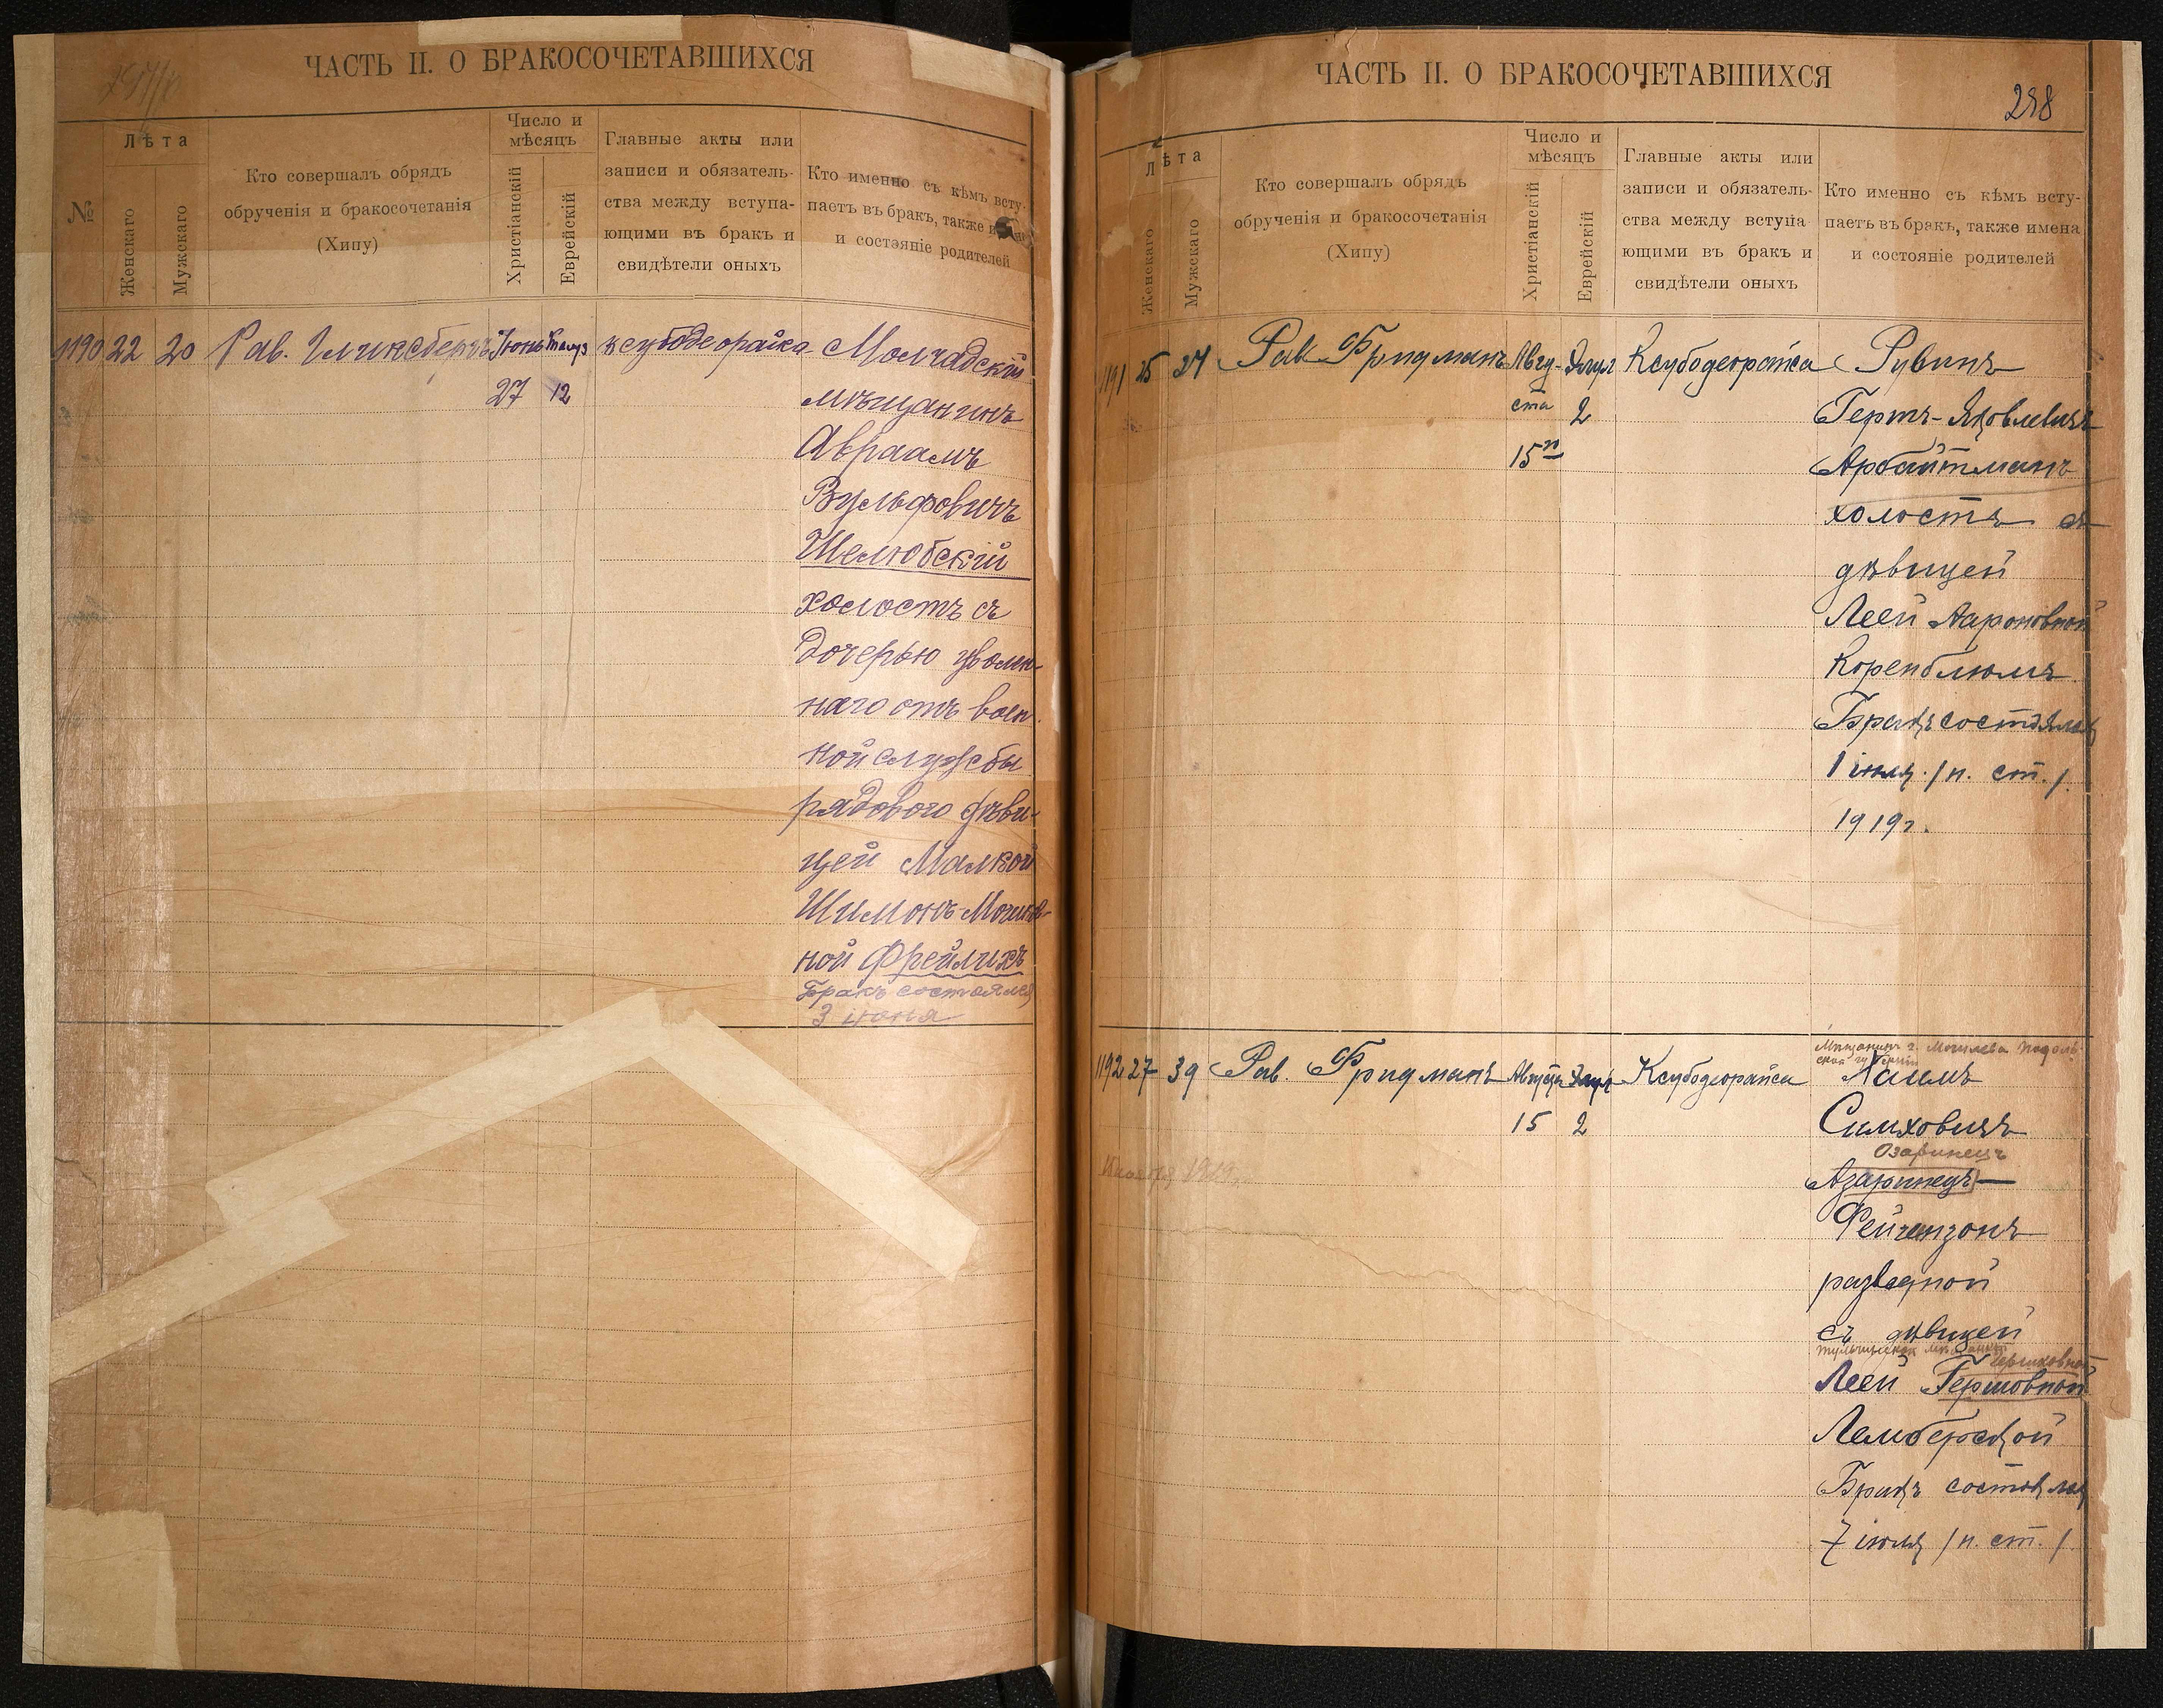 ЧАСТЬ II. О БРАКОСОЧЕТАВШИХСЯ
№
Лѣта
Женскаго
Мужскаго
Кто совершалъ обрядъ
обрученія и бракосочетанія
(Хипу)
Число и
мѣсяцъ
Христіанскій
Еврейскій
Главные акты или
записи и обязатель-
ства между вступа-
ющими въ бракъ и
свидѣтели оныхъ
Кто именно съ кѣмъ всту-
паетъ въ бракъ, также
и состояніе родителей
1190 22 20 Рав. Гликсбергъ Іюнь Тамуз ксубодеорайса Молчадскій
27 12 мѣщанинъ
Авраамъ
Вульфовичъ
Шелюбскій
холостъ съ
дочерью уволен-
наго отъ воен-
ной службы
рядового дѣви-
цей Малкой
Шимонъ-
ной Фрейлихъ
Бракъ состоялся
3 іюня
ЧАСТЬ II. О БРАКОСОЧЕТАВШИХСЯ
288
Лѣта
Женскаго
Мужскаго
Кто совершалъ обрядъ
обрученія и бракосочетанія
(Хипу)
Число и
мѣсяцъ
Христіанскій
Еврейскій
Главные акты или
записи и обязатель-
ства между вступа
ющими въ бракъ и
свидѣтели оныхъ
Кто именно съ кѣмъ всту-
паетъ въ бракъ, также имена
и состояніе родителей
1191 25 27 Рав Фридманъ Авгу- Элул Ксубодеорайса Рувинъ
ста 2 Гертъ-Яковлевичъ
15го Арбайтманъ
холостъ съ
дѣвицей
Леей Аароновной
Коренблюмъ
Бракъ состоялся
1 іюля /н. ст./
1919г.
1192 27 39 Рав. Фридманъ Августа Элул Ксубодеорайса Мѣщанинъ г. Могилева Подоль-
ской губерніи
Хаимъ
15 2 Симховичъ
Озаринецъ
Азаринецъ
Фейгензонъ
разведной
съ дѣвицей
мѣщанкой
Гершковной
Леей Гершовной
Лембергской
Бракъ состоялся
7 іюля /н. ст./